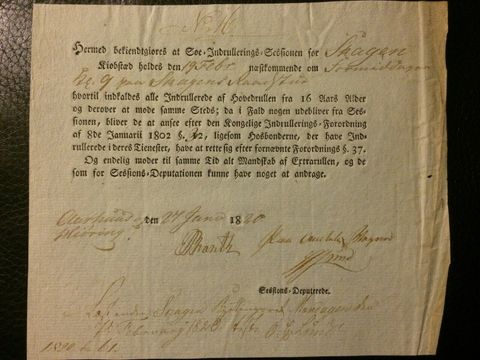 No.
Hermed bekiendtgiøres at Søe-Indrullerings-Sessionen for Skagen
Kiøbstæd holdes den 19 Febr. næstkommende om Formiddagen
Kl. 9 paa Skagens Raadstue
hvortil indkaldes alle Indrullerede af Hovedrullen fra 16 Aars Alder
og derover at møde samme Steds; da i Fald nogen udebliver fra Ses-
sionen, bliver de at ansee efter den Kongelige Indrullerings-Forordning
af 8de Januarii 1802 §. 12, ligesom Hosbonderne, der have Ind-
rullerede i deres Tienester, have at rette sig efter fornævnte Forordnings §. 37.
Og endelig møder til samme Tid alt Mandskab af Extrarullen, og de
som for Sessions-Deputationen kunne have noget at andrage.
den 27 Janr 1820
Sessions-Deputerede.
Februarij 1820